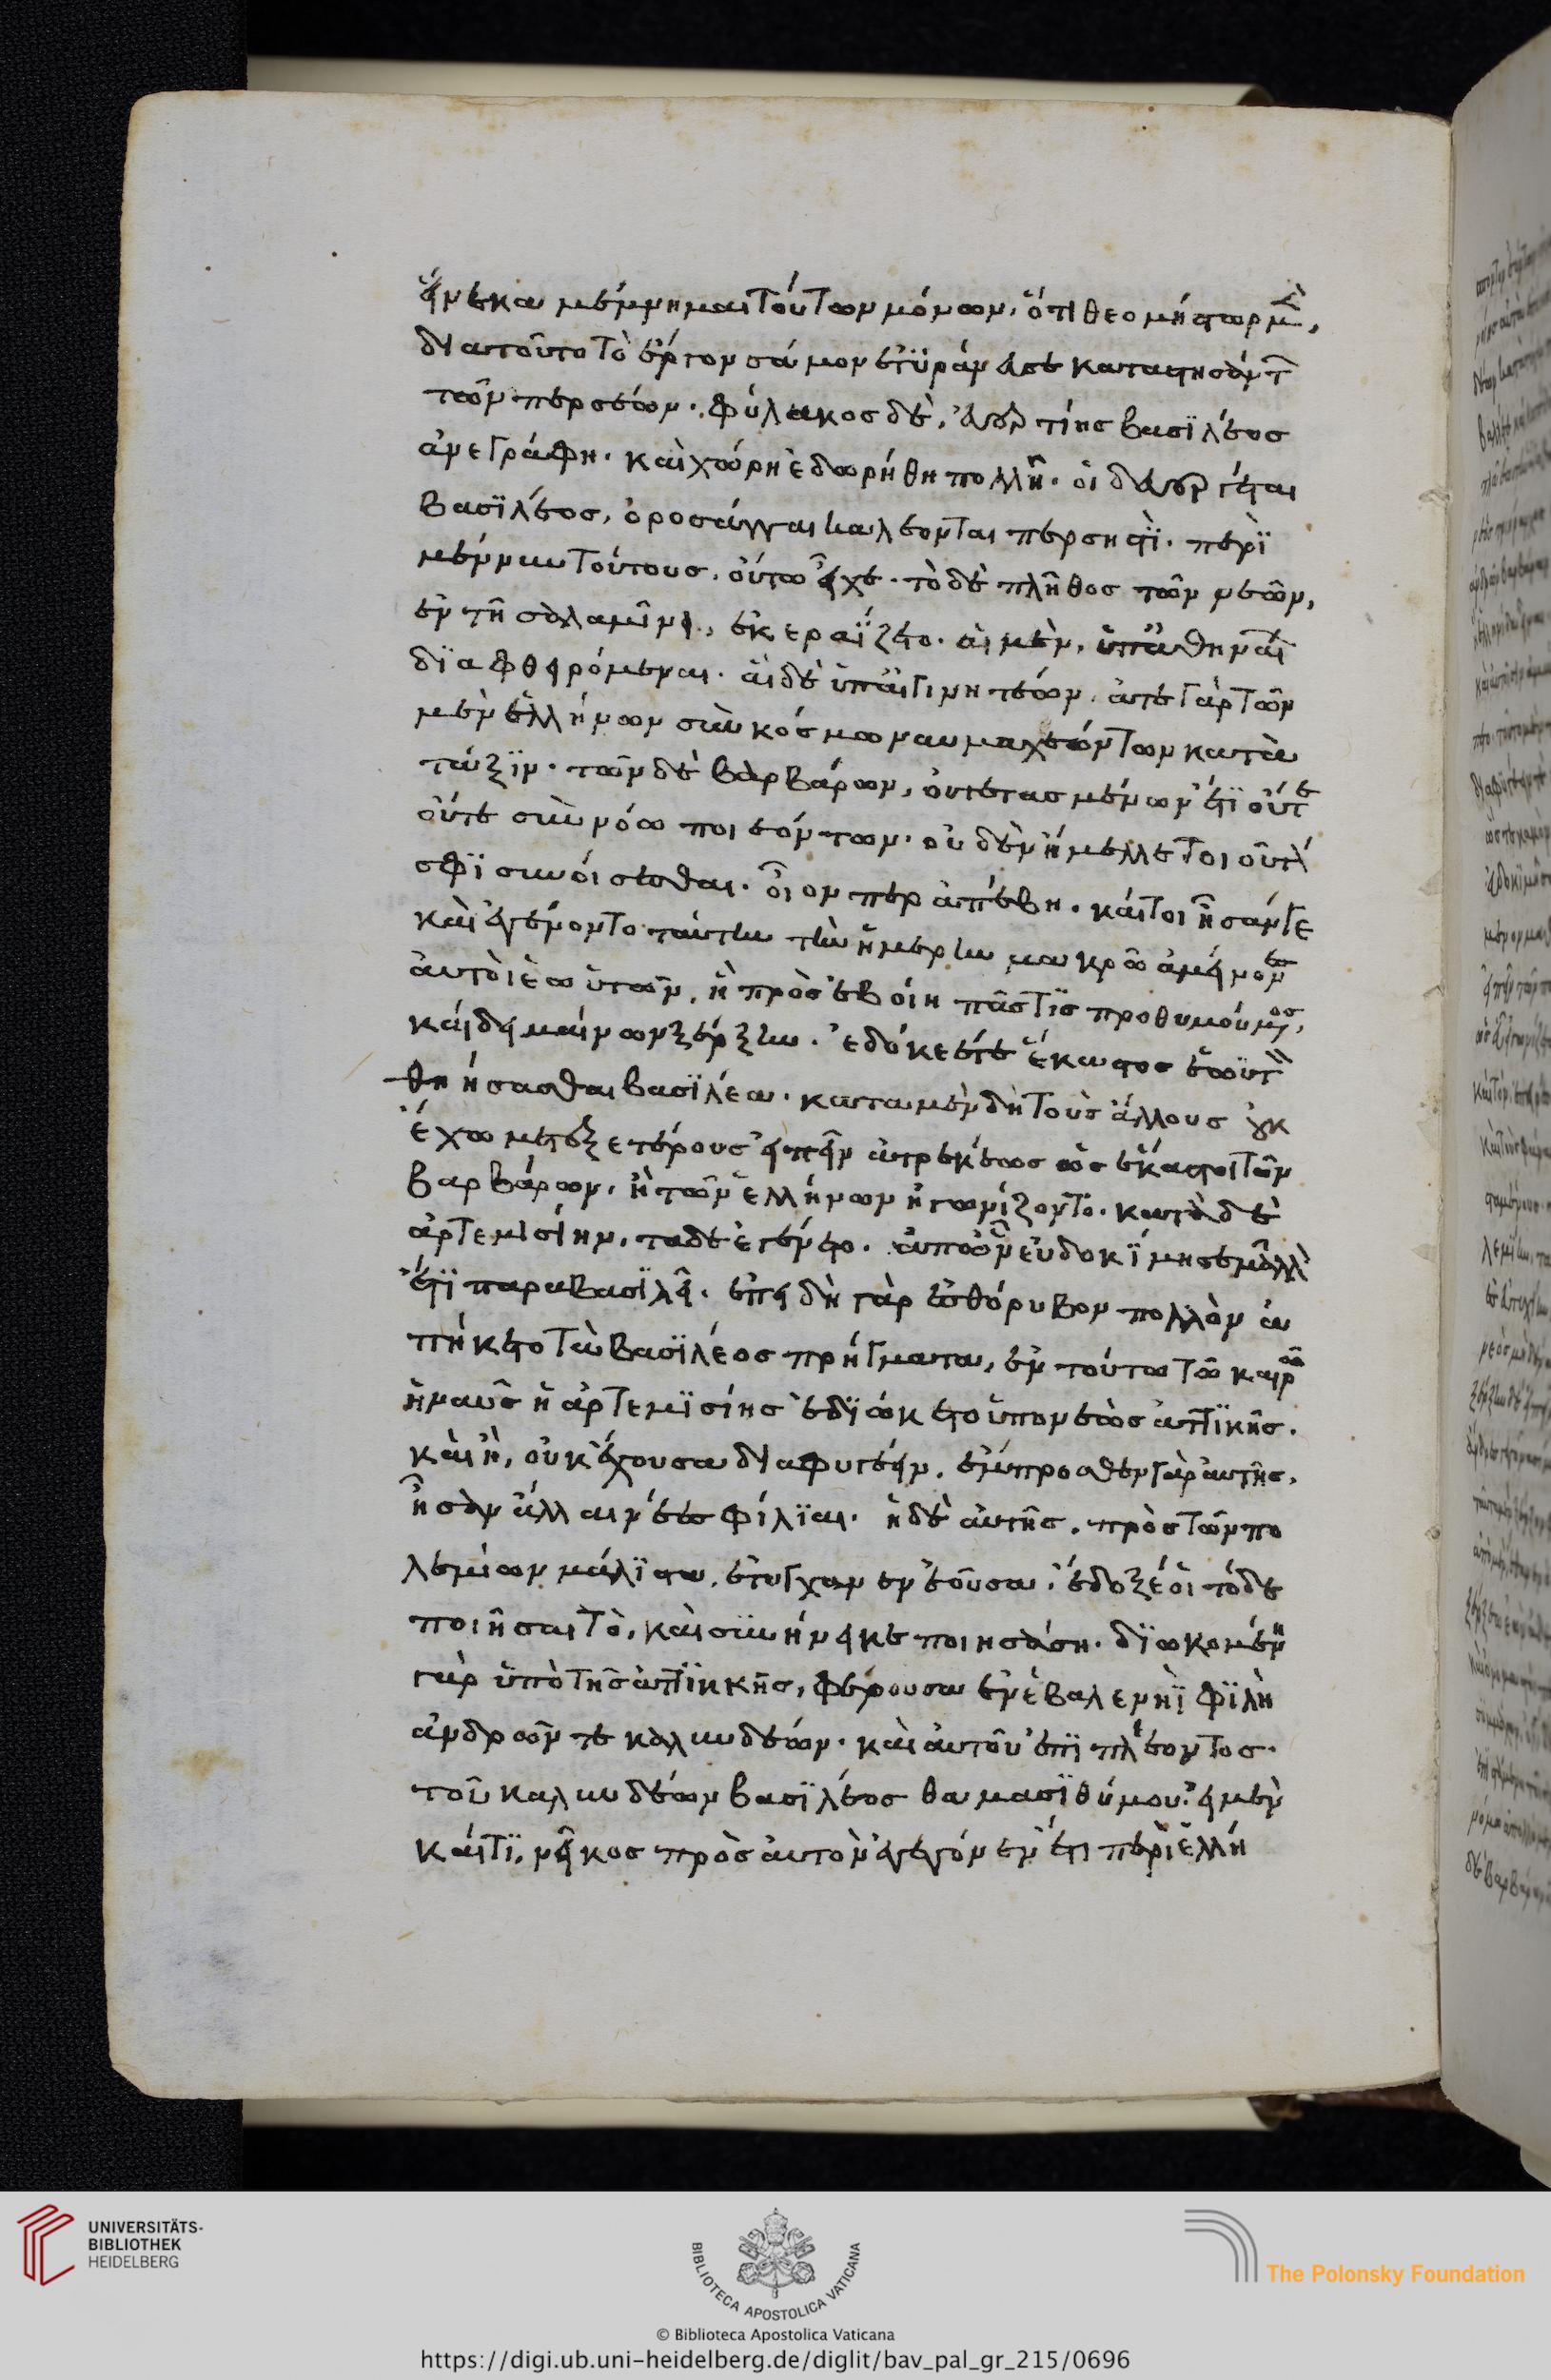 εἵνεκα μέμνημαι τούτων μόνων, ὅτι θεομήστωρ μὲν,
διατοῦτο τὸ ἔργον σάμον ἐτυράν καταστησάντ
τῶν περσέων. φύλακος δὲ, βασϊλέος
ἀνεγράφη. καὶ χώρη ἐδωρήθη πολλῆ. οἱ δ
βασϊλέος, ὀροσάγγαι καλέονται περσηστὶ. περὶ
μέν νυν τούτους, οὕτω εἶχε. τὸ δὲ πλῆθος τῶν νεῶν,
ἐν τῆ σαλαμῖνι, ἐκεραΐζετο. αἱ μὲν, ὑπ' ἀθηναί
δϊαφθειρόμεναι. αἱ δὲ ὑπ' αἰγινητέων. ἅτε γὰρ τῶν
μὲν ἑλλήνων σὺν κόσμω ναυμαχεόντων κατὰ
τάξϊν. τῶν δὲ βαρβάρων, οὐτεταγμένων ἔτϊ οὔτε
οὔτε σὺν νόω ποιεόντων. οὐδὲν ἤμελλε τοιοῦτό
σφϊ συνοίσεσθαι. οἷον περ ἀπέβη. καίτοι ἦσάν γε
καὶ ἐγένοντο ταύτην τὴν ἡμέρην μακρῶ ἀμείνον
αὐτοὶ ἑωϋτῶν, ἢ πρὸς ἐβοίη πᾶς τϊς προθυμούμενος,
καὶ δειμαίνων ξέρξην. ἐδόκεέ τε ἕκαστος ἑωϋτ
θηήσασθαι βασϊλέα. κατὰ μὲν δὴ τοὺς ἄλλους οὐκ
ἔχω μετεξετέρους εἰπεῖν ἀτρεκέως ὡς ἕκαστοι τῶν
βαρβάρων, ἢ τῶν ἑλλήνων ἠγωνίζοντο. κατὰ δὲ
ἀρτεμισίην, ταδε ἐγένετο. ἀπ' ὧν εὐδοκϊμησε μᾶλλ
ἔτϊ παρα βασϊλεῖ. ἐπειδὴ γὰρ ἐς θόρυβον πολλὸν ἀ
πήκετο τὰ βασϊλέος πρήγματα, ἐν τούτω τῶ καιρῶ
ἡ ναῦς ἡ ἀρτεμϊσίης ἐδϊώκετο ὑπο νεὸς ἀττϊκῆς.
καὶ ἣ, οὐκ ἔχουσα διαφυγέειν. ἔμπροσθεν γὰρ αὐτῆς,
ἦσαν ἄλλαι νέες φίλϊαι. ἡ δὲ αὐτῆς, πρὸς τῶν πο
λεμίων μάλϊστα, ἐτύγχανεν ἐοῦσα. ἔδοξέ οἱ τόδε
ποιῆσαι τὸ, καὶ συνήνεικε ποιησάση. δϊωκομένη
γὰρ ὑπὸ τῆς ἀττϊκῆς, φέρουσα ἐνέβαλε νηῒ φϊλίη
ἀνδρῶν τε καλυνδέων. καὶ αὐτοῦ ἐπϊπλέοντος.
τοῦ καλυνδέων βασϊλέος δαμασϊθύμου. εἰ μὲν
καί τϊ, νεῖκος πρὸς αὐτὸν ἐγεγόνεεν ἔτι περὶ ἑλλή
UNIVERSITÄTS-
BIBLIOTHEK
HEIDELBERG
BIBLIOTECA APOSTOLICA VATICANA
The Polonsky Foundation
© Biblioteca Apostolica Vaticana
https://digi.ub.uni-heidelberg.de/diglit/bav_pal_gr_215/0696